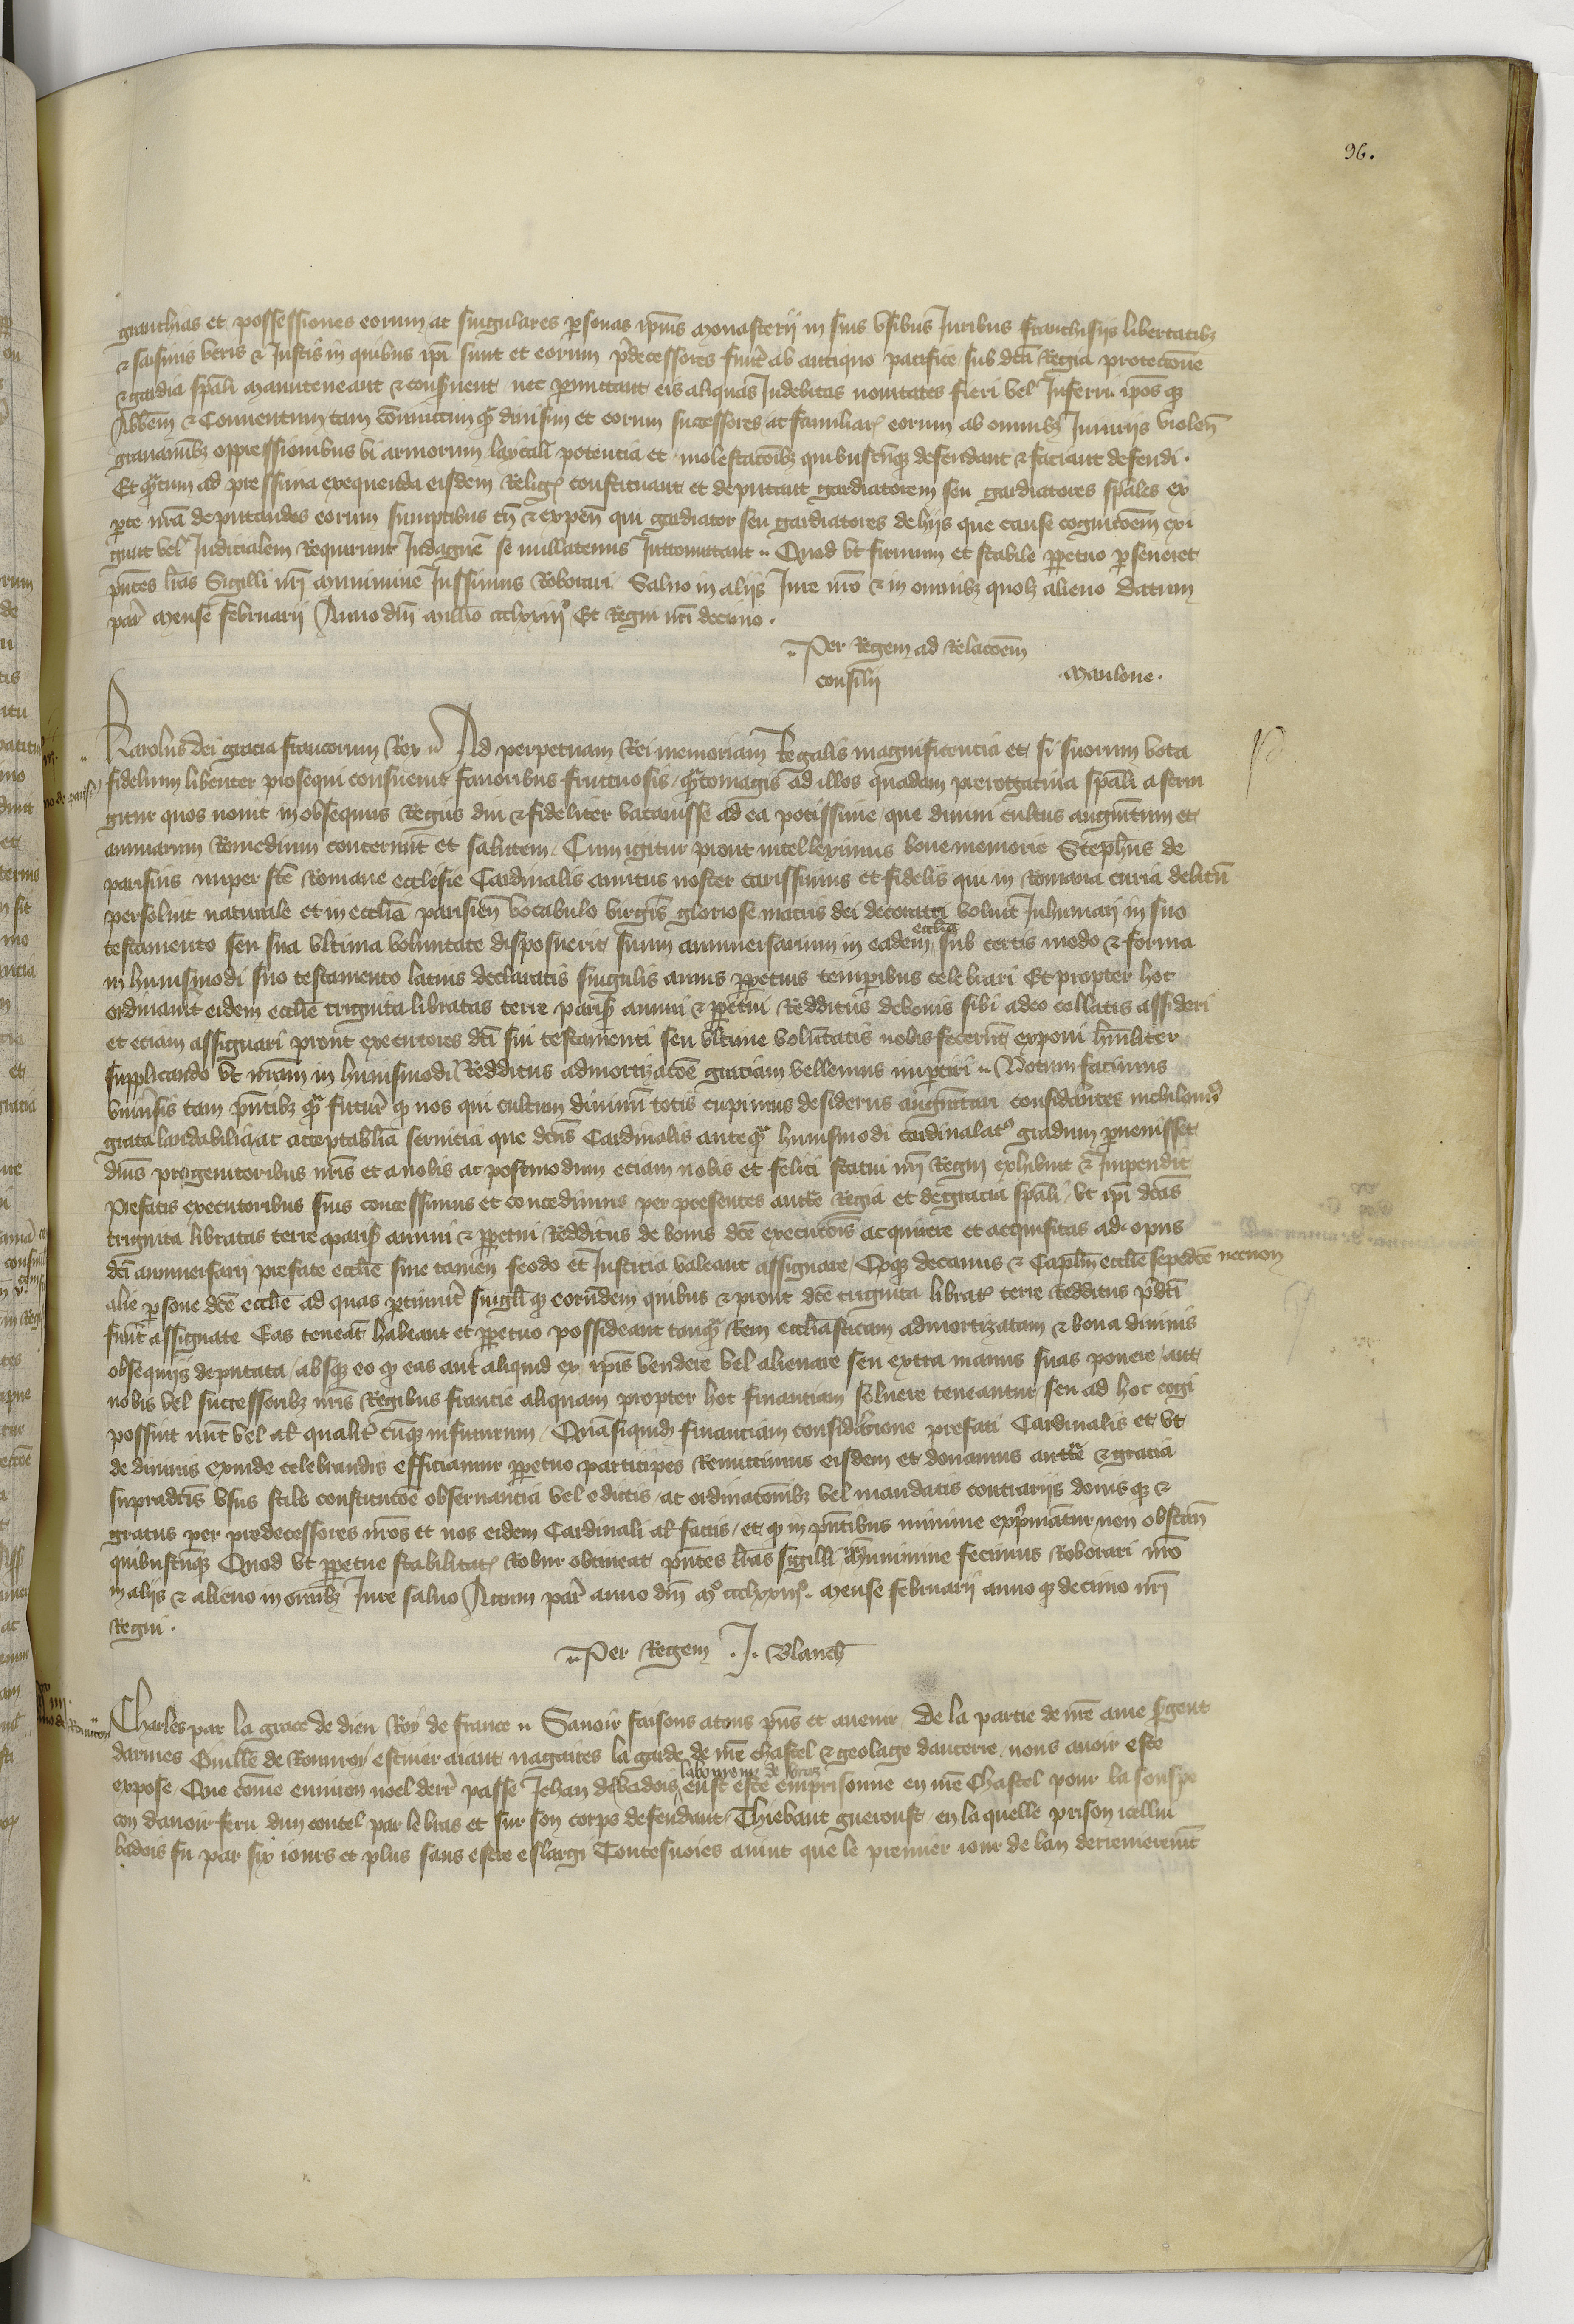 96.
granchias et possessiones eorum ac singulares psonas ipius monasterij in suis usibus Iuribus franchisijs libertatibz
& saisinis veris & Iustis in quibus ipi sunt et eorum pdecessores fuert ab antiquo pacifice sub dca Regia protectione
& gardia spali manuteneant & conseruent nec pmittant eis aliquas Indebitas nouitates fieri vel Inferri ipos qz
Abbem & Conuentum tam coniunctim qz diuisim et eorum successores ac familiar eorum ab omnibz Iniurijs violen
grauaminibz oppressionibus vi armorum laycali potencia et molestacoibz quibuscunqz defendant & faciant defendi.
Et qtum ad premissa exequenda eisdem Religs constituant et deputant gardiatorem seu gardiatores spales ex
pte nra deputandos eorum sumptibus tn & expen qui gardiator seu gardiatores de hijs que cause cognicoem exi
gunt vel Iudicialem Requirunt Indagine se nullatenus Intromittant Quod vt firmum et stabile ppetuo pseueret
pntes lras Sigilli nri munimine Iussimus Roborari Saluo in alijs Iure nro & in omnibz quolz alieno Datum
par mense februarij Anno dni millio ccclxxiijo Et Regni nri decimo.
Per Regem ad Relacoem
consilij maulone.
Karolus dei gracia francorum Rex Ad perpetuam Rei memoriam Regalis magnificencia et si suorum vota
fidelium libenter prosequi consueuit fauoribus fructuosis qtomagis ad illos quadam prerogatiua spali astrin
gitur quos nouit in obsequiis Regiis diu & fideliter vacauisse ad ea potissime que diuini cultus augmtum et
animarum Remedium concernut et salutem Cum igitur prout intelleximus bone memorie Stephus de
parisius nuper ste Romane ecclesie Cardinalis amicus noster carissimus et fidelis qui in Romana curia debitu
persoluit naturale et in ecclia parisien vocabulo virgis gloriose matris dei decorata voluit Inhumari in suo
testamento seu sua vltima voluntate disposuerit suum anniuersarium in eadem ecclia sub certis modo & forma
in huiusmodi suo testamento latius declaratis singulis annis ppetuis temporibus celebrari Et propter hoc
ordinauit eidem ecclie triginta libratas terre paris annui & ppetui Redditus de bonis sibi a deo collatis assideri
et eciam assignari prout executores dci sui testamenti seu vltime voluntatis nobis fecerut exponi humiliter
supplicando vt nram in huiusmodi Redditus admortizacoe graciam vellemus impertiri Notum facimus
vniusis tam pntibz qz futur qz nos qui cultum diuinu totis cupimus desideriis augmtari considantes nichilomus
grata laudabilia ac acceptabilia seruicia que dcus Cardinalis anteqz huiusmodi cardinalats gradum puenisset
diuis progenitoribus nris et a nobis ac postmodum eciam nobis et felici statui nri Regni exhibuit & Impendit
Prefatis executoribus suis concessimus et concedimus per presentes auctte Regia et de gracia spali vt ipi dcas
triginta libratas terre paris annui & ppetui Redditus de bonis dce executois acquirere et acquisitas ad opus
dci anniuersarij prefate ecclie sine tamen feodo et Iusticia valeant assignare Qqz decanus & Caplm ecclie sepedce necnon
alie psone dce ecclie ad quas ptinuit singli qz eorundem quibus & prout dce triginta librat terre Redditus pdci
fuert assignate Eas teneat habeant et ppetuo possideant tanqz Rem eccliasticam admortizatam & bona diuinis
obsequijs deputata absqz eo qz eas aut aliquid ex ipis vendere vel alienare seu extra manus suas ponere aut
nobis vel successoribz nris Regibus francie aliquam propter hoc financiam soluere teneantur seu ad hoc cogi
possint nuc vel al qualit cuqz in futurum Quasiquid financiam considacione prefati Cardinalis et vt
de diuinis exinde celebrandis efficiamur ppetuo participes Remittimus eisdem et donamus auctte & gracia
supradcis vsus stilo constitucoe obseruancia vel edictis ac ordinacoibz vel mandatis contrariis donis qz &
gratiis per predecessores nros et nos eidem Cardinali al factis et qz in pntibus minime exprimantur non obstan
quibuscunqz Quod vt ppetue stabilitat Robur obtineat pntes lras sigilli nri munimine fecimus Roborari nro
in alijs & alieno in omibz Iure saluo Actum par anno dni mo ccclxxiijo. mense februarij anno qz decimo nri
Regni.
Per Regem .J. Blanch
Charles par la grace de dieu Roy de france Sauoir faisons a tous pns et auenir De la partie de nre ame sgent
darmes Guille de Rouuroy escuier aiant nagaires la garde de nre chastel & geolage dancerre nous auoir este
expose Que come enuiron noel derr passe Jehan de badois eust este emprisonne en nre Chastel pour la souspe
con dauoir feru dun coutel par le bras et sur son corps defendant Thiebaut guerouft en la quelle prison icellui
badois fu par six iours et plus sans estre eslargi Toutesuoies auint que le premier iour de lan derrenierement